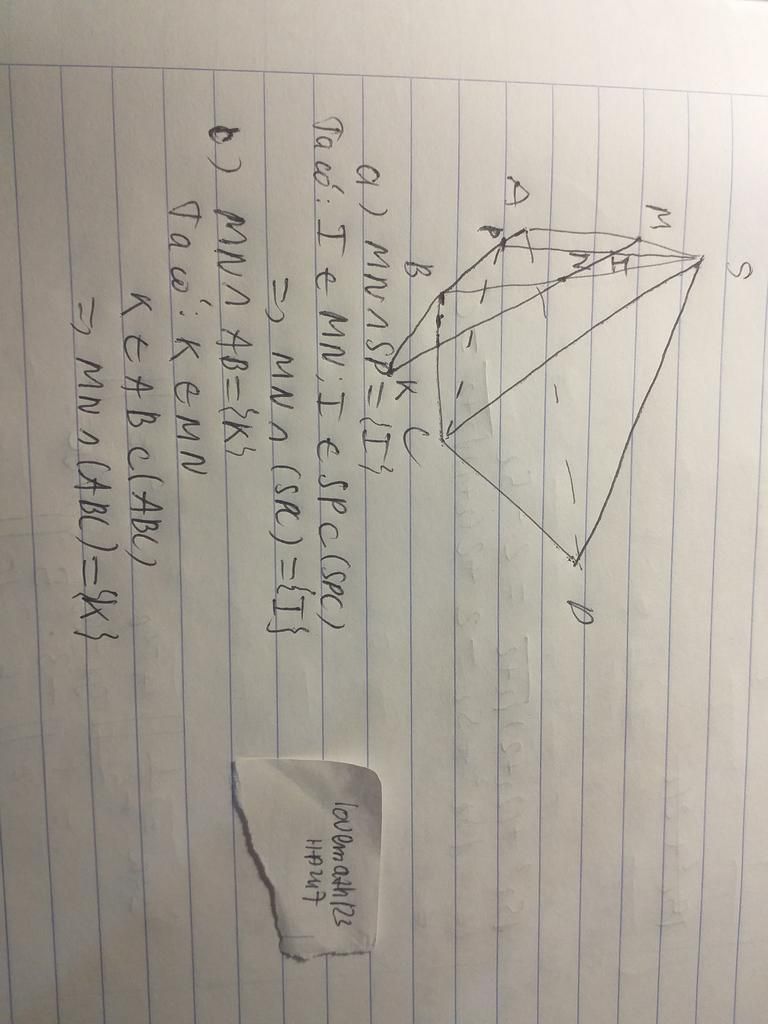 S
M
I
N
A
P
B
K
C
D
a) MN∩SP={I}
Ta có: I ∈ MN; I ∈ SP⊂(SPC)
=> MN∩(SPC)={I}
b) MN∩AB={K}
Ta có: K∈MN
K∈AB⊂(ABC)
=> MN∩(ABC)={K}
lovemath123